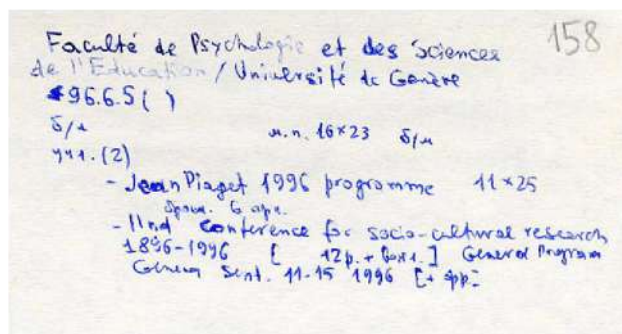 158
Faculté de Psychologie et des Sciences
de l'Education / Université de Genève
96.6.5( )
б/д м.п. 16×23 б/м
учч. (2)
- Jean Piaget 1996 programme 11×25
- IInd Conference for socio-cultural research
1896-1996 [ 12p. + ] General Program
Geneva Sept. 11-15 1996 [+ pp.